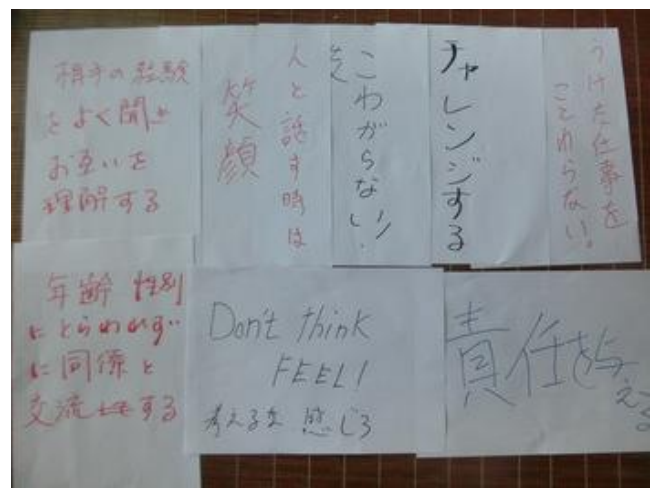 相手の経験
をよく聞き
お互いを
理解する
人と話す時は
笑顔
こわがらない!
チャレンジする
うけた仕事を
ことわらない!
年齢 性別
にとらわれず
に同僚と
交流する
Don't think
FEEL!
考えるな 感じろ
責任を与える